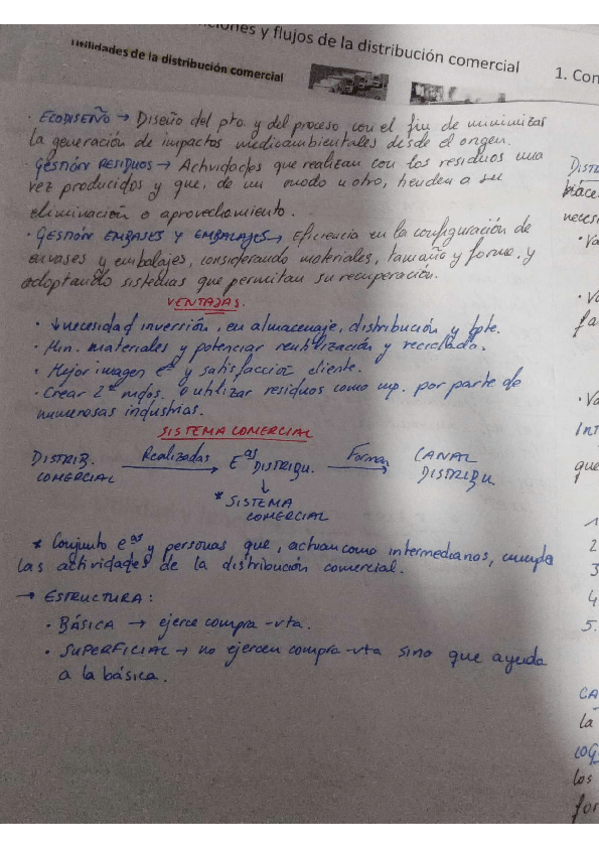 ciones y flujos de la distribución comercial
Utilidades de la distribución comercial
1. Con
· ECODISEÑO → Diseño del pto. y del proceso con el fin de minimizar
la generación de impactos medioambientales desde el origen.
· GESTIÓN RESIDUOS → Actividades que realizan con los residuos una
vez producidos y que, de un modo u otro, tienden a su
eliminación o aprovechamiento.
· GESTIÓN EMBASES Y EMBALAJES → Eficiencia en la configuración de
envases y embalajes, considerando materiales, tamaño y forma. y
adoptando sistemas que permitan su recuperación.
VENTAJAS.
· ↓ necesidad inversión, en almacenaje, distribución y tpte.
· Min. materiales y potenciar reutilización y reciclado.
· Mejor imagen eª y satisfacción cliente.
· Crear 2º mdos. o utilizar residuos como mp. por parte de
numerosas industrias.
SISTEMA COMERCIAL
DISTRIB. COMERCIAL Realizadas → Eas DISTRIBU. Forma → CANAL DISTRIBU
↓
* SISTEMA
COMERCIAL
* Conjunto eas y personas que, actuan como intermediarios, cumple
las actividades de la distribución comercial.
→ ESTRUCTURA:
· BÁSICA → ejerce compra-vta.
· SUPERFICIAL → no ejercen compra-vta sino que ayuda
a la básica.
DISTR
necesi
· Va
· Va
fa
· Va
INT
que
1
2
3
4
5.
CA
la
LOG
los
for